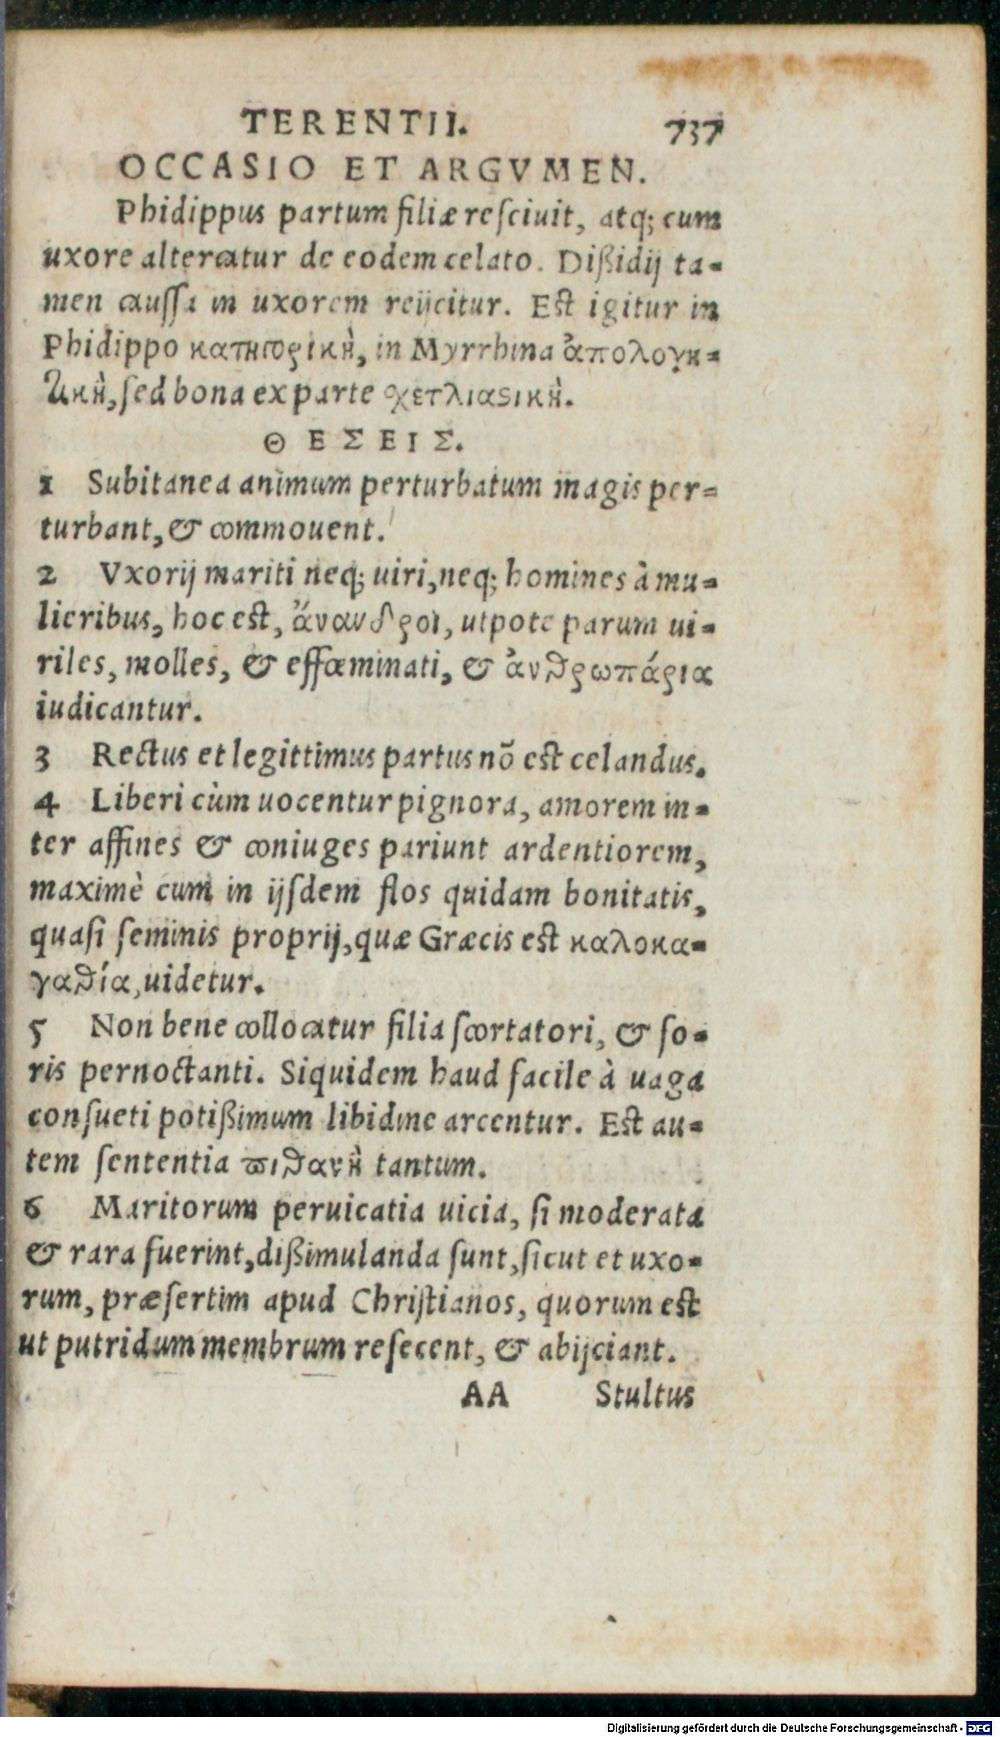 TERENTII. 737
OCCASIO ET ARGVMEN.
Phidippus partum filiæ resciuit, atq; cum
uxore altercatur de eodem celato. Dißidij ta-
men caussa in uxorem reijcitur. Est igitur in
Phidippo κατηγορικὴ, in Myrrhina ἀπολογη-
τικὴ, sed bona ex parte σχετλιαστικὴ.
ΘΕΣΕΙΣ.
1 Subitanea animum perturbatum magis per-
turbant, & commouent.
2 Vxorij mariti neq; uiri, neq; homines à mu-
lieribus, hoc est, ἄνανδροι, utpote parum ui-
riles, molles, & effœminati, & ἀνθρωπάρια
iudicantur.
3 Rectus et legittimus partus nõ est celandus.
4 Liberi cùm uocentur pignora, amorem in-
ter affines & coniuges pariunt ardentiorem,
maximè cum in ijsdem flos quidam bonitatis,
quasi seminis proprij, quæ Græcis est καλοκα-
γαθία, uidetur.
5 Non bene collocatur filia scortatori, & fo-
ris pernoctanti. Siquidem haud facile à uaga
consueti potißimum libidine arcentur. Est au-
tem sententia πιθανὴ tantum.
6 Maritorum peruicatia uicia, si moderata
& rara fuerint, dißimulanda sunt, sicut et uxo-
rum, præsertim apud Christianos, quorum est
ut putridum membrum resecent, & abijciant.
AA Stultus
Digitalisierung gefördert durch die Deutsche Forschungsgemeinschaft - DFG